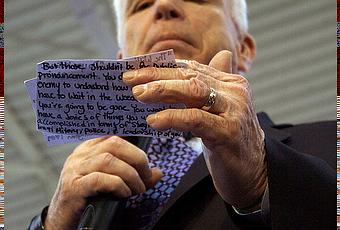 But those shouldn't be public
pronouncement. You d
enemy to understand how
have to wait in the weed
you're going to be gone. You want
have a series of things you w
accomplished in terms of
Military, Police, & leadership